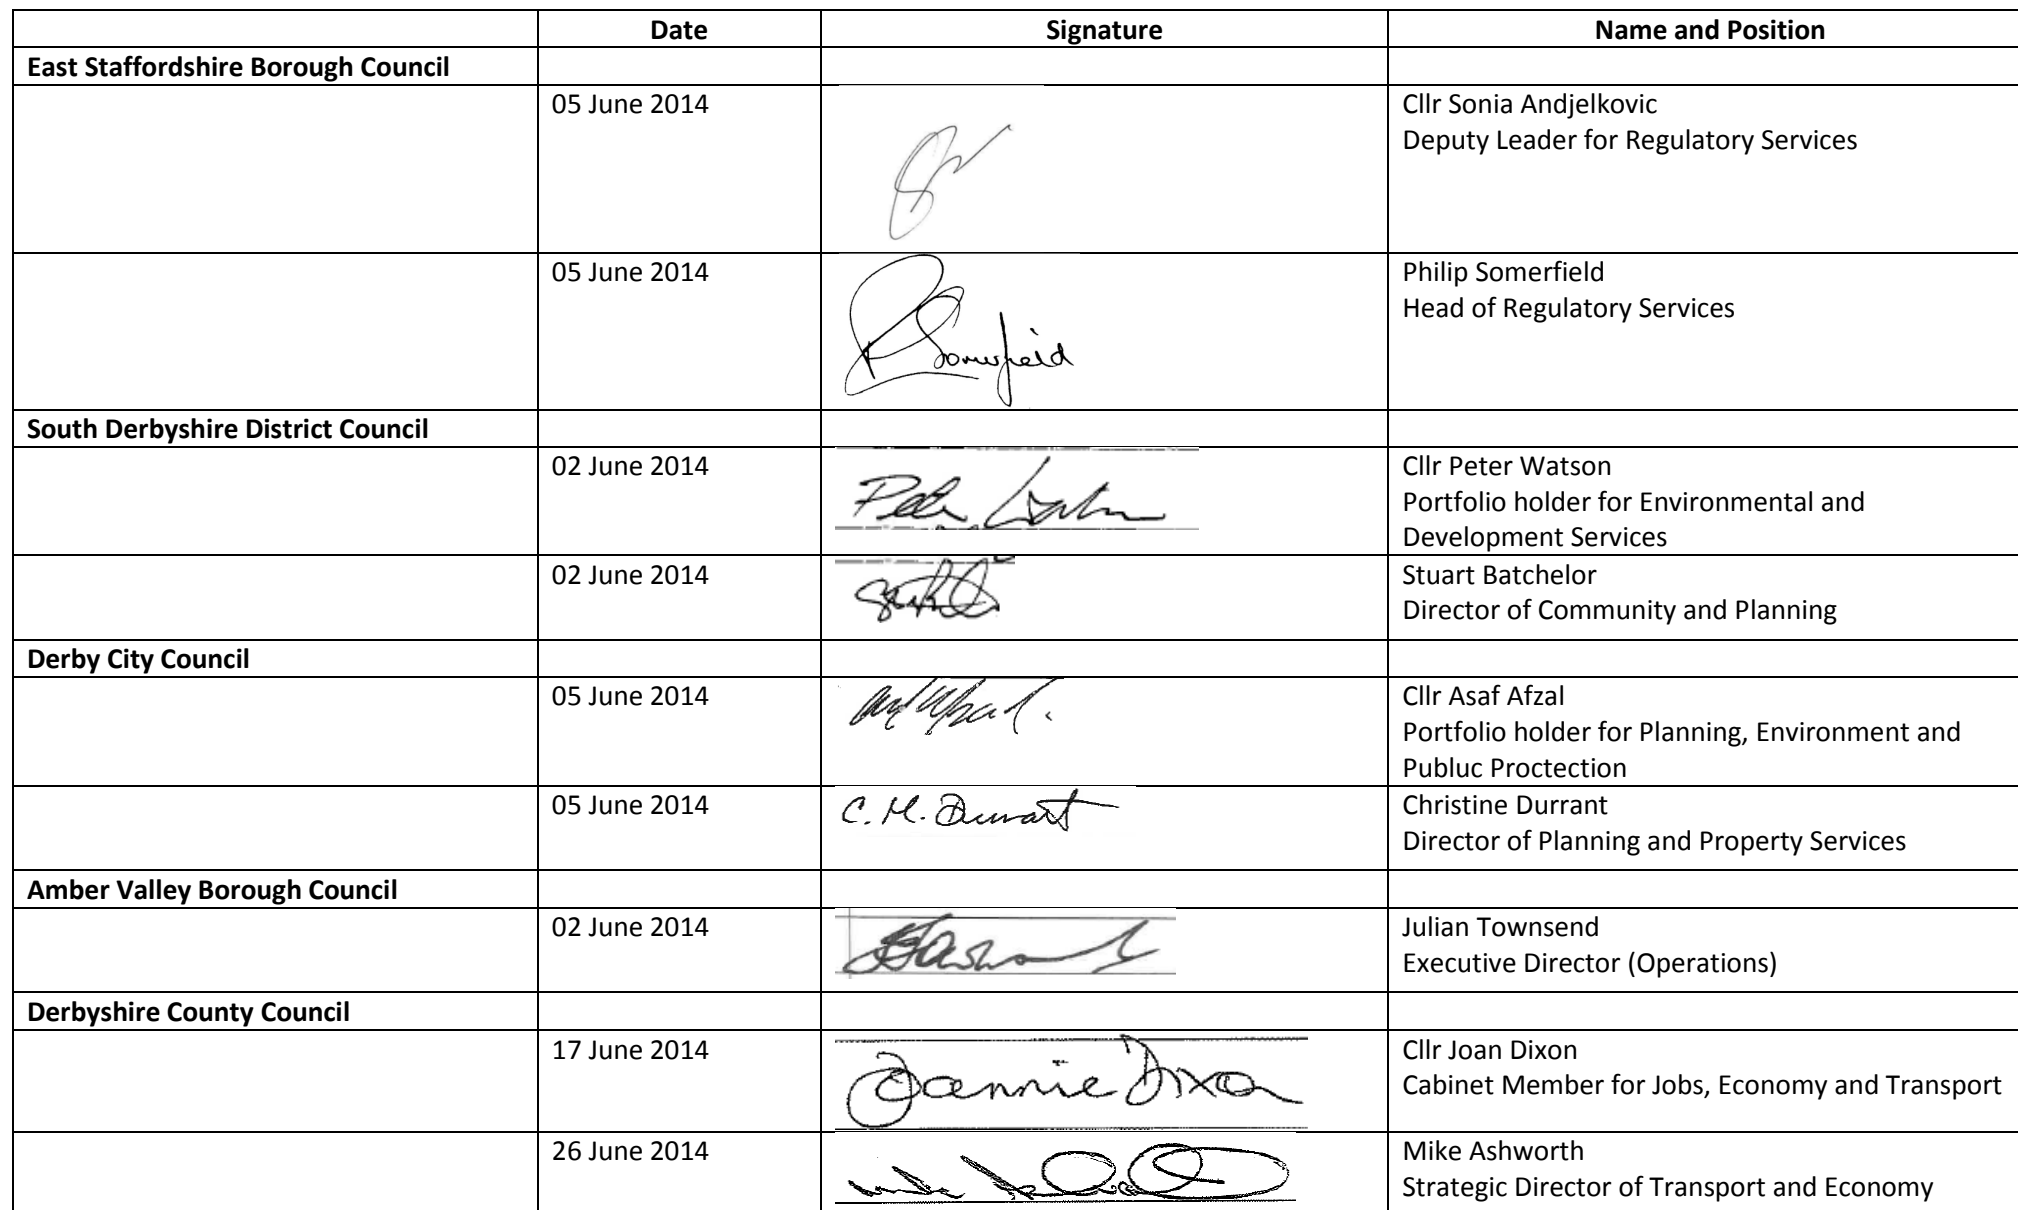 Date Signature Name and Position
East Staffordshire Borough Council
05 June 2014 Cllr Sonia Andjelkovic
Deputy Leader for Regulatory Services
05 June 2014 Philip Somerfield
Head of Regulatory Services
Somerfield
South Derbyshire District Council
02 June 2014 Cllr Peter Watson
Portfolio holder for Environmental and
Development Services
02 June 2014 Stuart Batchelor
Director of Community and Planning
Derby City Council
05 June 2014 Cllr Asaf Afzal
Portfolio holder for Planning, Environment and
Publuc Proctection
05 June 2014 C. M. Durrant Christine Durrant
Director of Planning and Property Services
Amber Valley Borough Council
02 June 2014 Julian Townsend
Executive Director (Operations)
Derbyshire County Council
17 June 2014 Joannie Dixon Cllr Joan Dixon
Cabinet Member for Jobs, Economy and Transport
26 June 2014 Mike Ashworth
Strategic Director of Transport and Economy